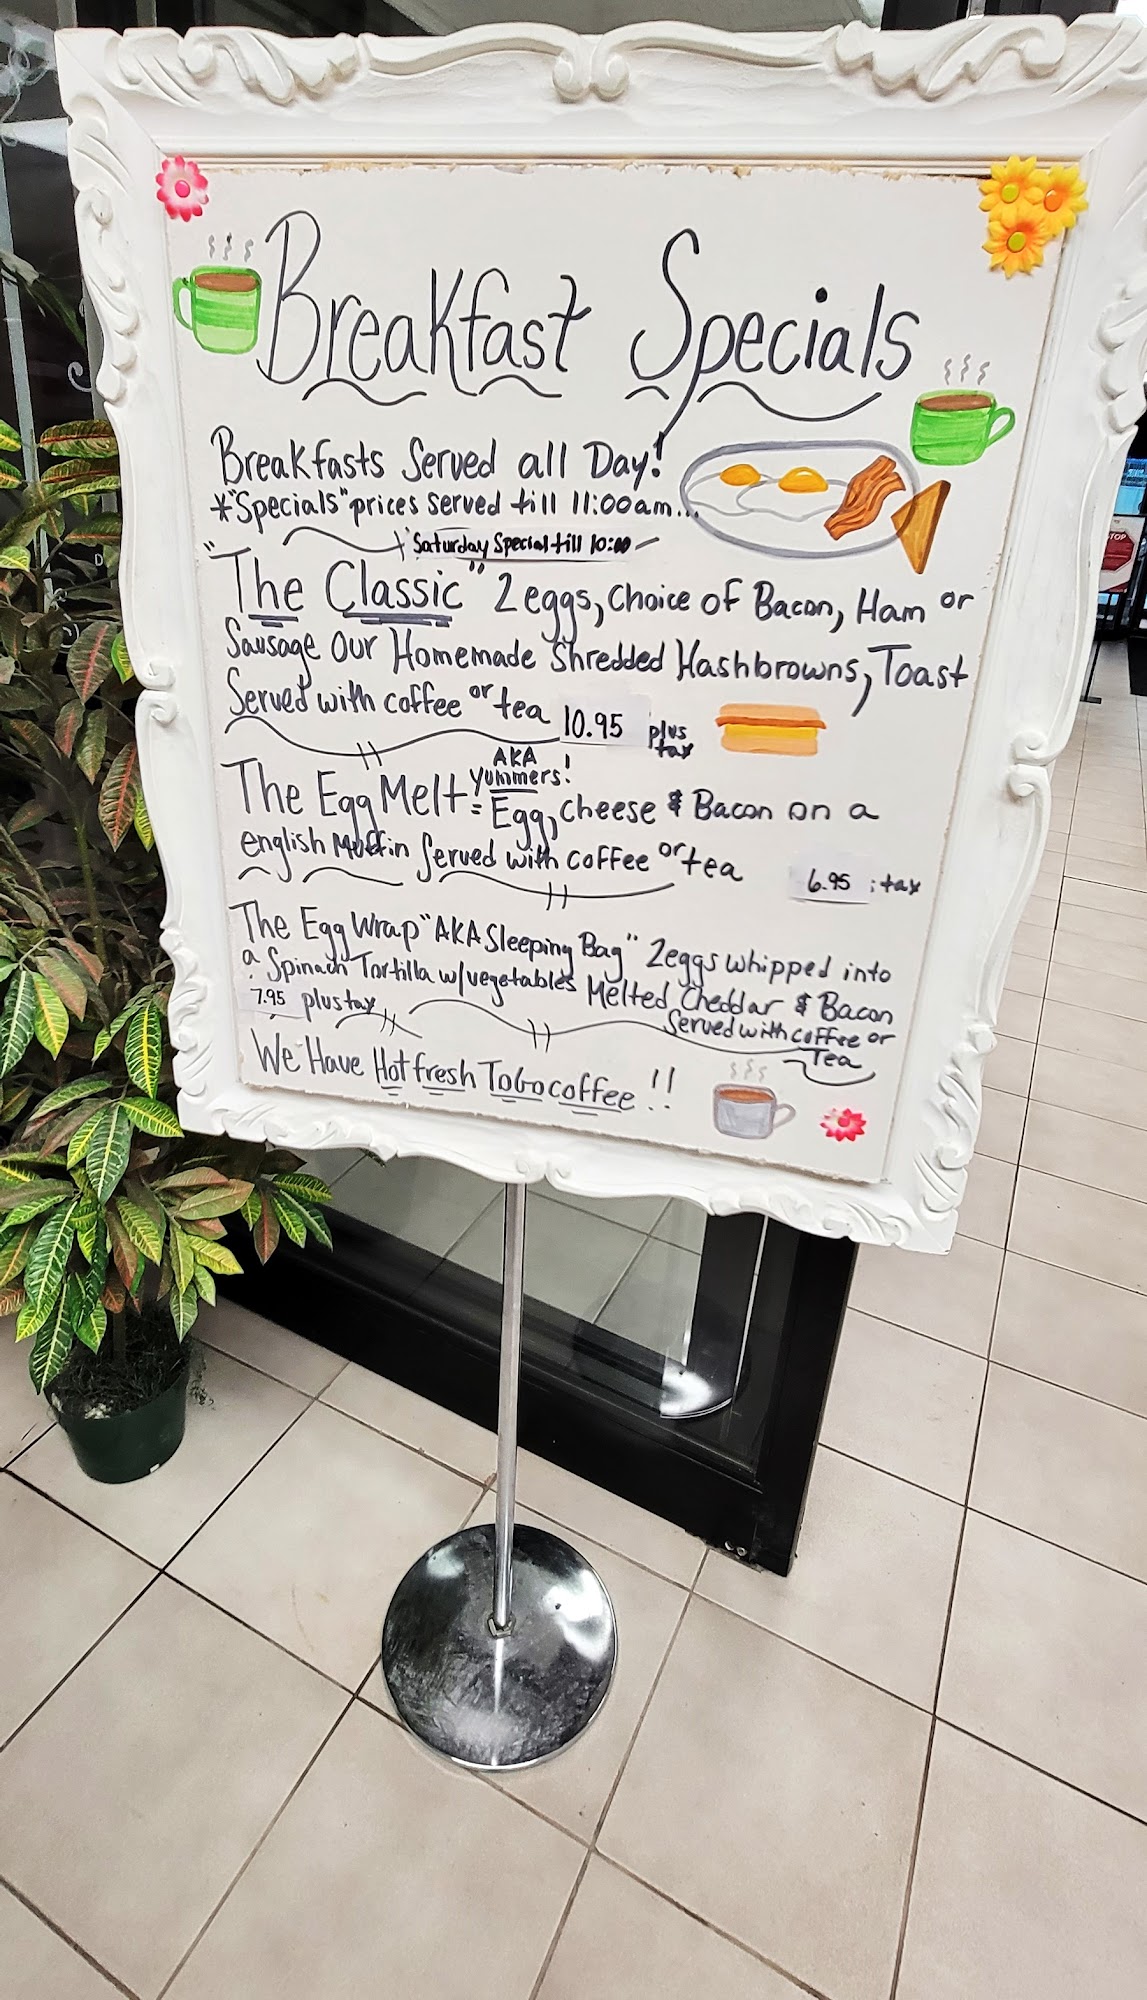 Breakfast Specials
Breakfasts Served all Day!
*"Specials" prices served till 11:00am...
* Saturday Special till 10:00
"The Classic" 2 eggs, Choice of Bacon, Ham or
Sausage Our Homemade Shredded Hashbrowns, Toast
Served with coffee or tea 10.95 plus tax
The Egg Melt AKA Yummers! = Egg, cheese & Bacon on a
english Muffin Served with coffee or tea 6.95 + tax
The Egg Wrap "AKA Sleeping Bag" 2 eggs whipped into
a Spinach Tortilla w/vegetables Melted Cheddar & Bacon
7.95 plus tax Served with coffee or
Tea
We Have Hot fresh ToGo coffee!!
STOP